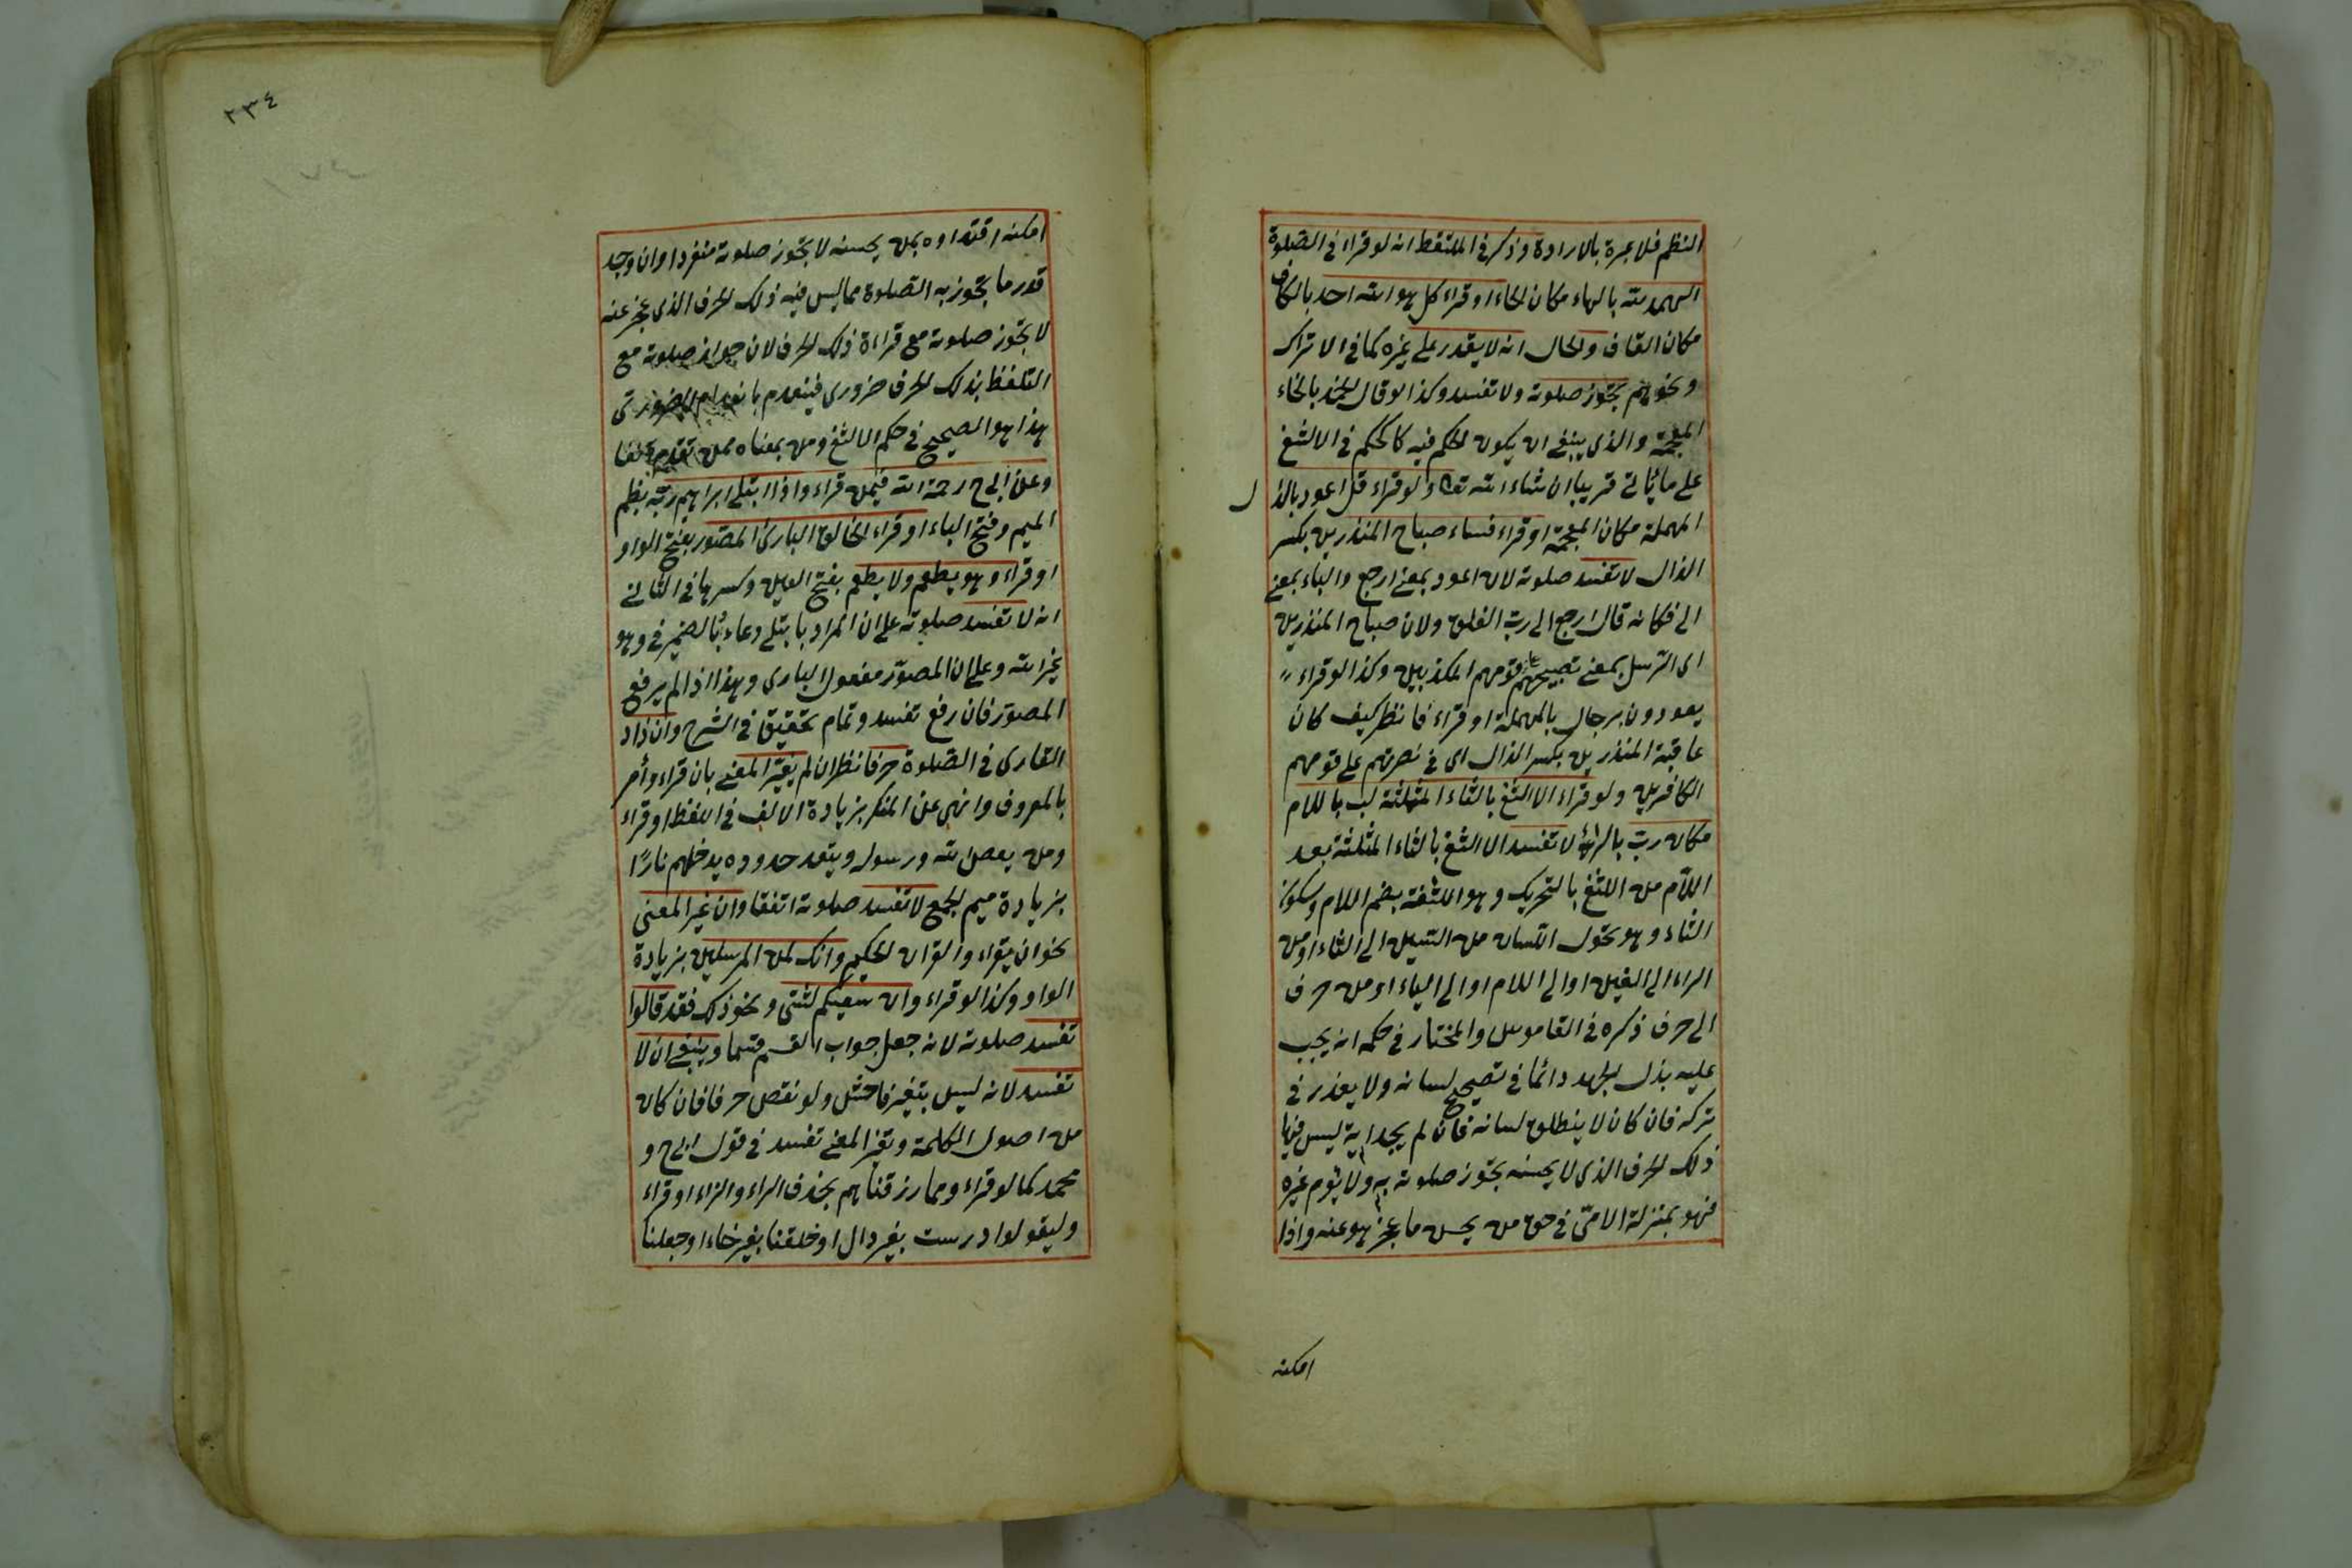 النظم فلا عبرة بالارادة وذكر في الملتقط انه لو قراء في الصلوة
الهمد لله بالهاء مكان الحاء او قراء كل هو الله احد بالكاف
مكان القاف والحال انه لا يقدر على غيره كما في الاتراك
ونحوهم تجوز صلوته ولا تفسد وكذا لو قال الخمد بالخاء
المعجمة والذى ينبغى ان يكون الحكم فيه كالحكم في الالثغ
على ما يأتى قريبا ان شاء الله تعالى ولو قراء قل اعود بالدال
المهملة مكان المعجمة او قراء فساء صباح المنذرين بكسر
الذال لا تفسد صلوته لان اعود بمعنى ارجع والباء بمعنى
الى فكانه قال ارجع الى رب الفلق ولان صباح المنذرين
اى الرسل بمعنى تصبيحهم قومهم المكذبين وكذا لو قراء
يعودون برجال بالمهملة او قراء فانظر كيف كان
عاقبة المنذرين بكسر الذال اى في نصرتهم على قومهم
الكافرين ولو قراء الالثغ بالثاء المثلثة لب باللام
مكان رب بالراء لا تفسد الالثغ بالثاء المثلثة بعد
اللام من اللثغ بالتحريك وهو اللثغة بضم اللام وسكون
الثاء وهو تحول اللسان من السين الى الثاء او من
الراء الى الغين او الى اللام او الى الياء او من حرف
الى حرف ذكره في القاموس والمختار في حكمه انه يجب
عليه بذل الجهد دائما في تصحيح لسانه ولا يعذر في
تركه فان كان لا ينطلق لسانه فان لم يجد اية ليس فيها
ذلك الحرف الذى لا يحسنه تجوز صلوته به ولا يؤم غيره
فهو بمنزلة الامى في حق من يحسن ما عجز هو عنه واذا
امكنه
٢٣٤
امكنه اقتداوه بمن يحسنه لا تجوز صلوته منفردا وان وجد
قدر ما تجوز به الصلوة مما ليس فيه ذلك الحرف الذى عجز عنه
لا تجوز صلوته مع قراءة ذلك الحرف لان جواز صلوته مع
التلفظ بذلك الحرف ضرورى فينعدم بانعدام الضرورة
هذا هو الصحيح في حكم الالثغ ومن بمعناه ممن تقدم انفا
وعن ابى ح رحمة الله فيمن قراء واذا ابتلى ابراهيم ربه بضم
الميم وفتح الباء او قراء الخالق البارئ المصور بفتح الواو
او قراء وهو يطعم ولا يطعم بفتح العين وكسرها في الثانى
انه لا تفسد صلوته على ان المراد بابتلى دعاء والضمير في وهو
غير الله وعلى ان المصور مفعول البارى وهذا اذا لم يرفع
المصور فان رفع تفسد وتمام تحقيق في الشرح وان زاد
القارى في الصلوة حرفا نظر ان لم يغير المعنى بان قراء وأمر
بالمعروف وانهى عن المنكر بزيادة الالف في اللفظ او قراء
ومن يعص الله ورسوله ويتعد حدوده يدخلهم نارًا
بزيادة ميم الجمع لا تفسد صلوته اتفقا وان غير المعنى
نحو ان يقراء والقران الحكيم وانك لمن المرسلين بزيادة
الواو وكذا لو قراء وان سعيكم لشتى ونحو ذلك فقد قالوا
تفسد صلوته لانه جعل جواب القسم قسما وينبغى ان لا
تفسد لانه ليس بتغير فاحش ولو نقص حرفا فان كان
من اصول الكلمة وتغير المعنى تفسد في قول ابى ح و
محمد كما لو قراء ومما رزقناهم بحذف الراء والزاء او قراء
وليقولوا درست بغير دال او خلقنا بغير خاء او جعلنا